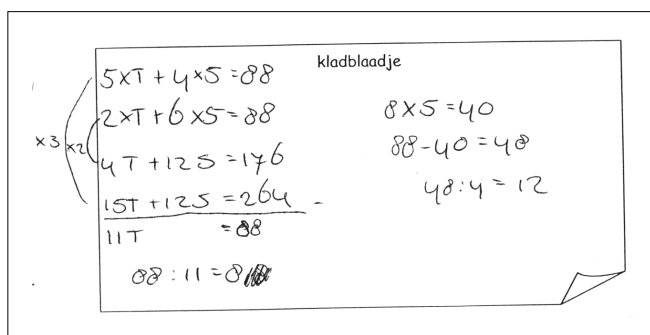 kladblaadje
5xT + 4x5 = 88
2xT + 6x5 = 88
x3 x2
4T + 12S = 176
15T + 12S = 264 -
11T = 88
88 : 11 = 8
8 x 5 = 40
88 - 40 = 48
48 : 4 = 12